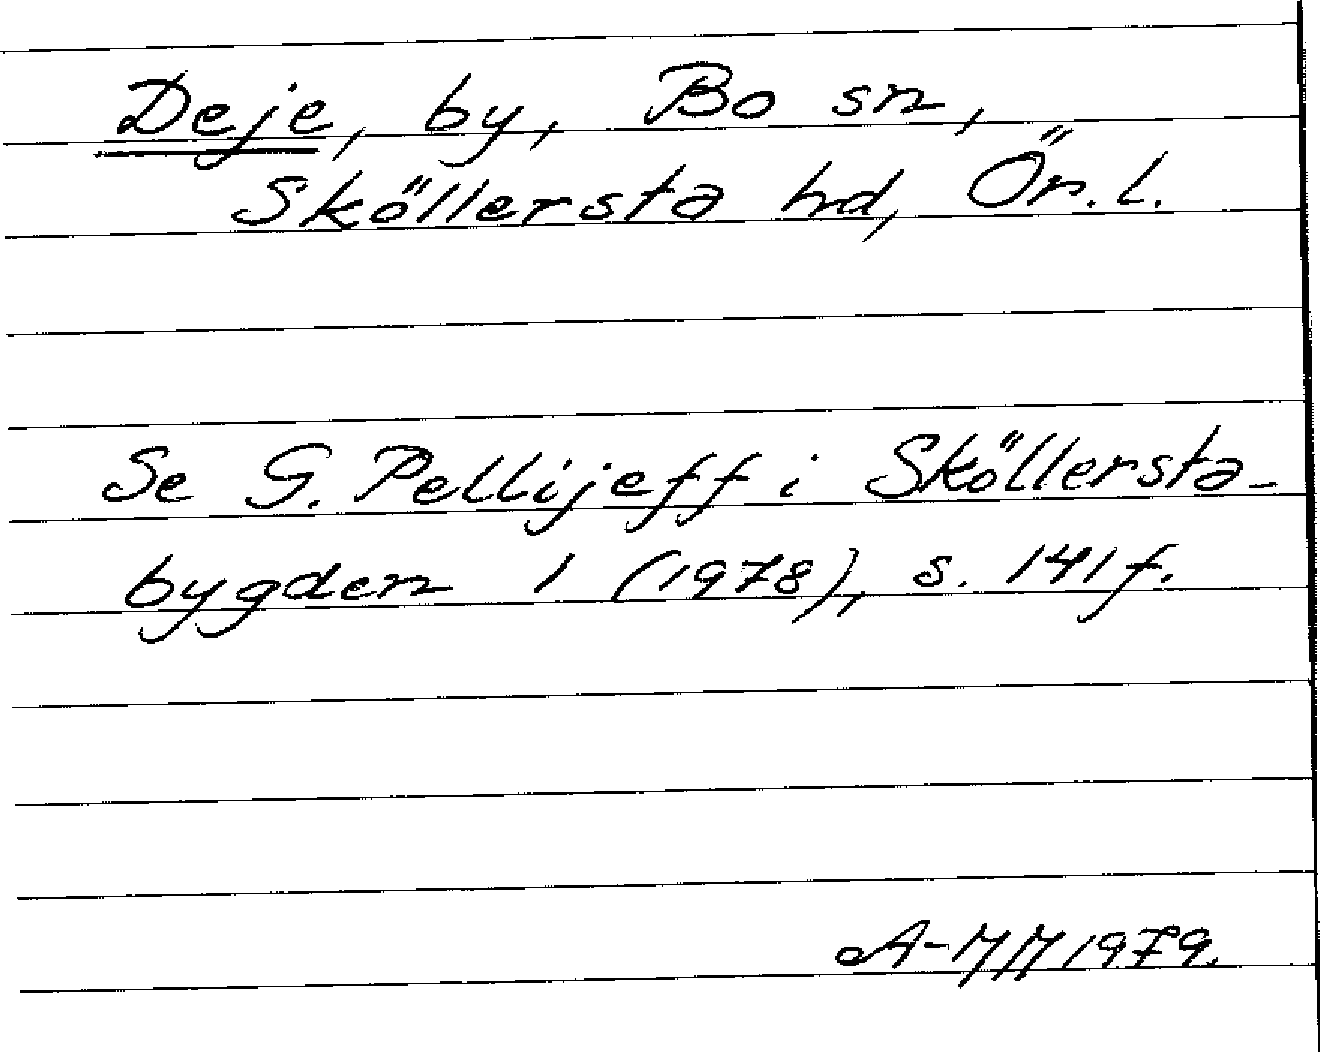 Deje, by, Bo sn,
Sköllersta hd, Ör.l.
Se G. Pellijeff i Sköllersta-
bygden 1 (1978), s. 141 f.
A-MM 1979.